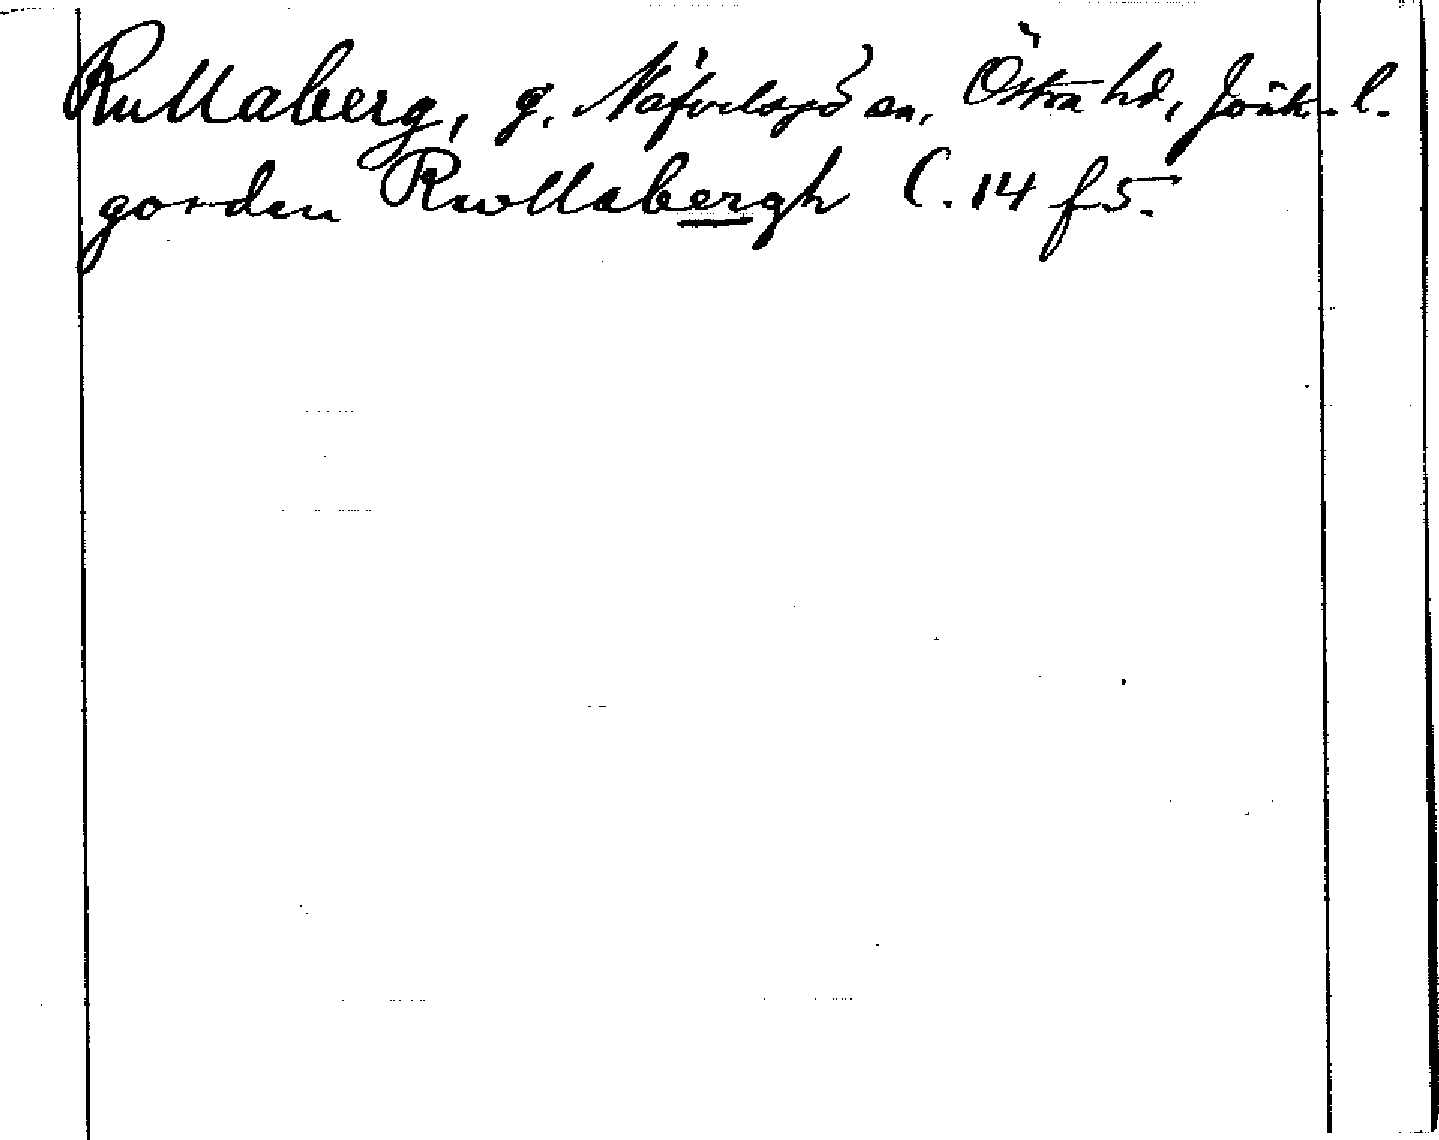 Rullaberg, g. Näfvelsjö sn, Östra hd, Jönk. l.
gorden Rwllabergh C. 14 f 5.